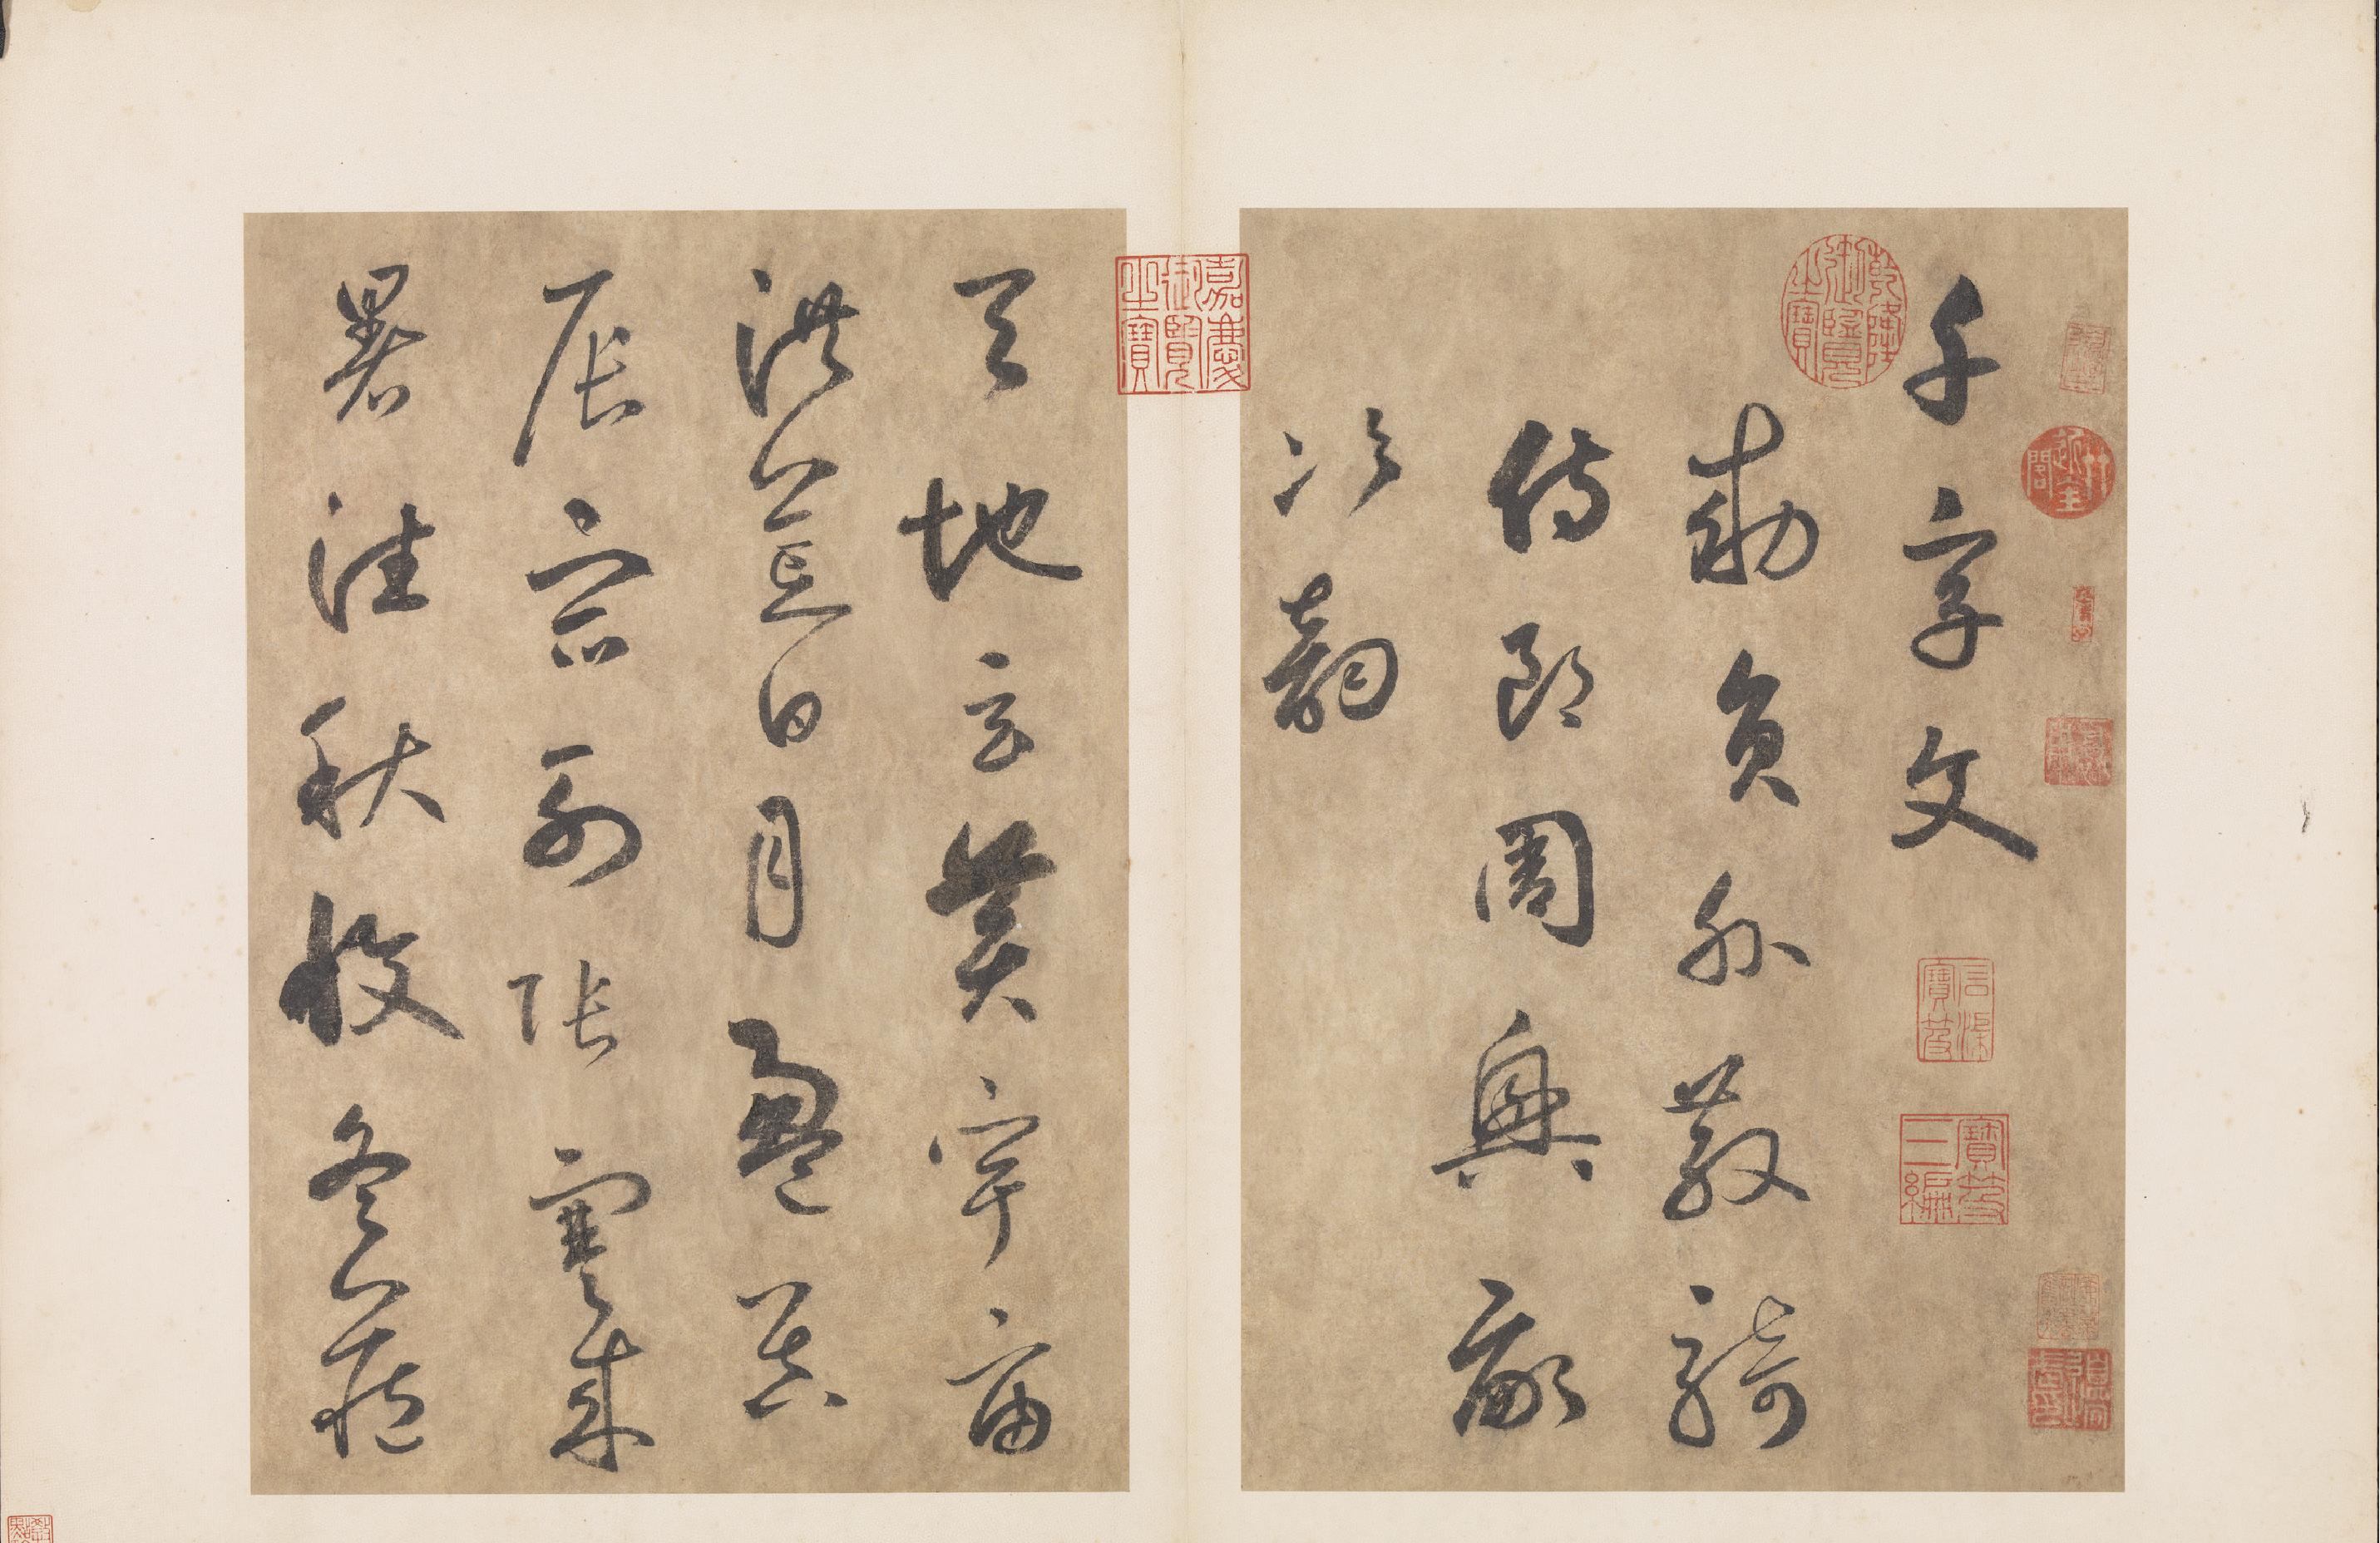 千字文
勅員外散騎
侍郎周興嗣
次韻
天地玄黃宇宙
洪荒日月盈昃
辰宿列張寒來
暑往秋收冬藏
乾隆御覽之寶
石渠寶笈
寶笈三編
嘉慶御覽之寶